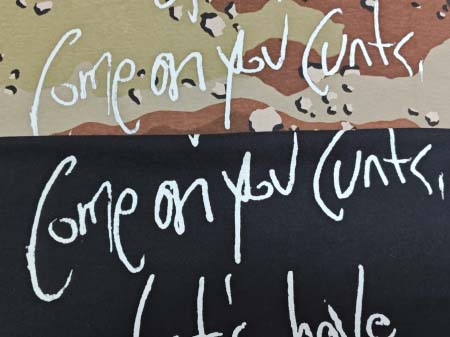 Come on you Cunts,
Come on you Cunts,
Let's have